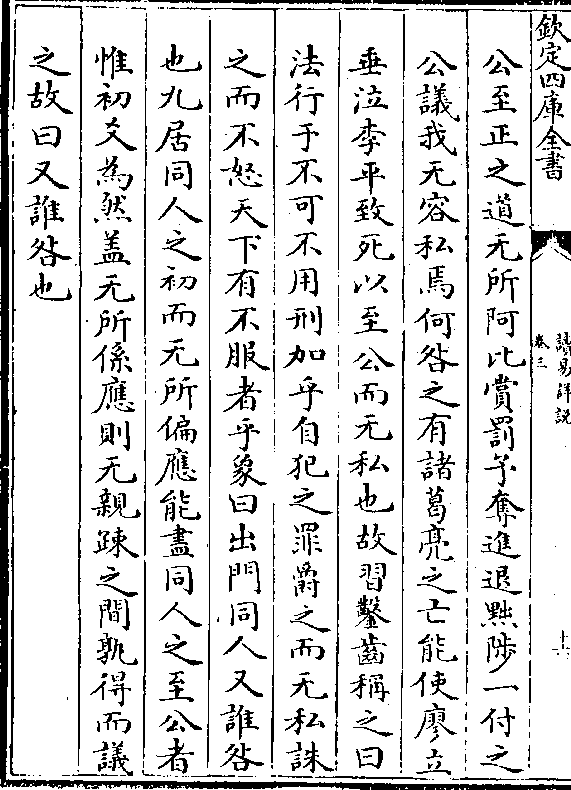 欽定四庫全書
讀易詳說
卷三
公至正之道无所阿比賞罰予奪進退黜陟一付之
公議我无容私焉何咎之有諸葛亮之亡能使廖立
垂泣李平致死以至公而无私也故習鑿齒稱之曰
法行于不可不用刑加乎自犯之罪爵之而无私誅
之而不怒天下有不服者乎象曰出門同人又誰咎
也九居同人之初而无所偏應能盡同人之至公者
惟初爻為然盖无所係應則无親踈之間孰得而議
之故曰又誰咎也